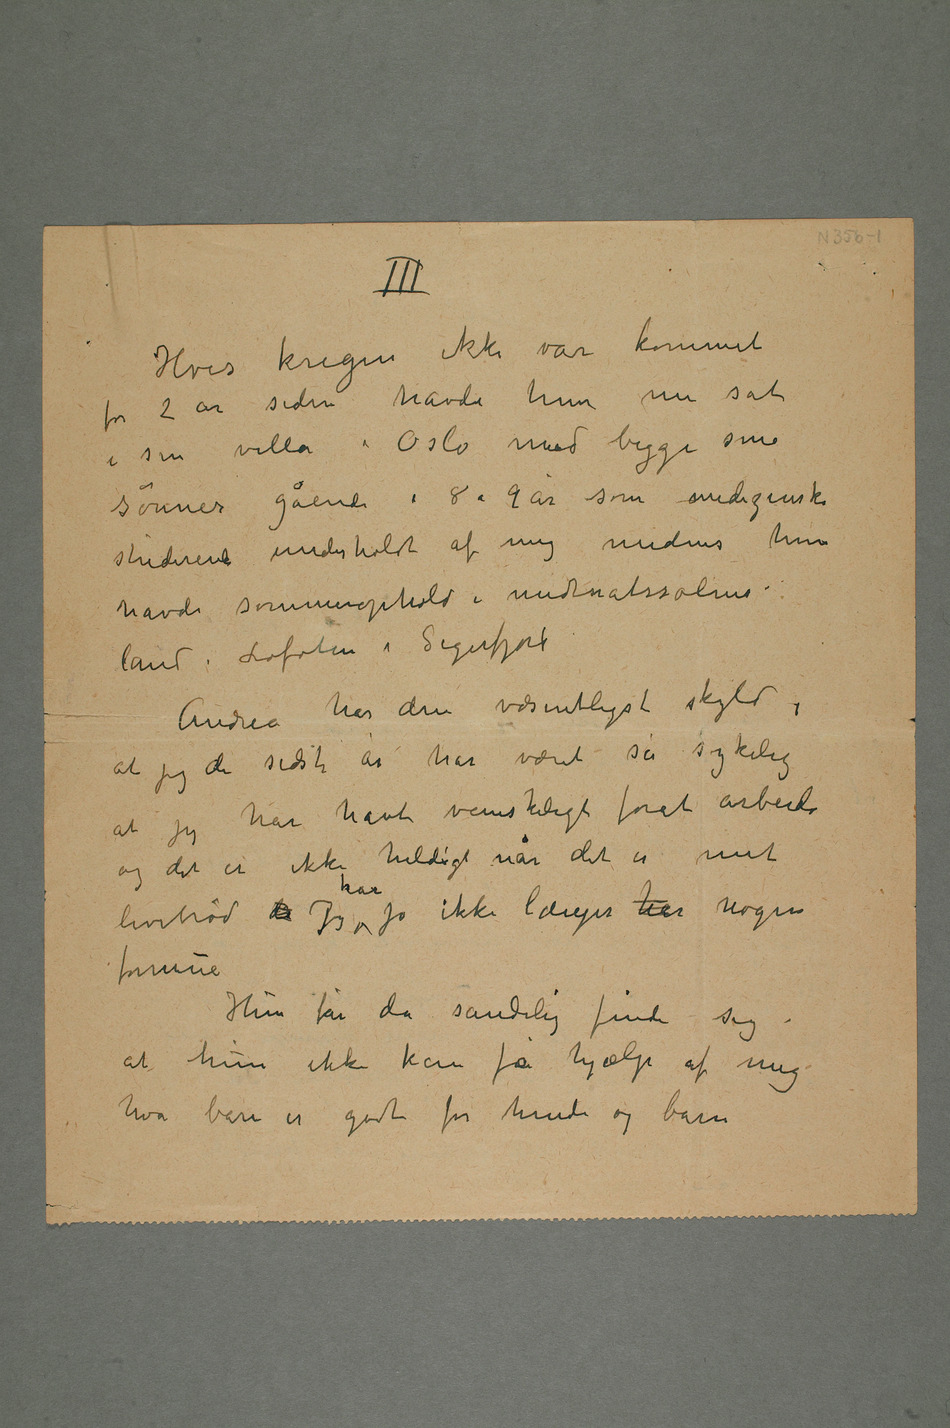 N 356-1
III
Hvis krigen ikke var kommet
for 2 år siden havde hun nu sat
i sin villa i Oslo med begge sine
sønner gående i 8 a 9 år som medizinske
studerende underholdt af mig medens hun
havde sommerophold i midtnatssolens
land i Lofoten i Sigerfjord
Andrea har den væsentligste skyld i
at jeg de sidste år har været så sykelig
at jeg har havt vanskeligt forat arbeide
og det er ikke heldigt når det er mit
levebrød Jeg har jo ikke længer har nogen
formue
Hun får da sandelig finde sig i
at hun ikke kan få hjælp af mig
hva bare er godt for hende og barn